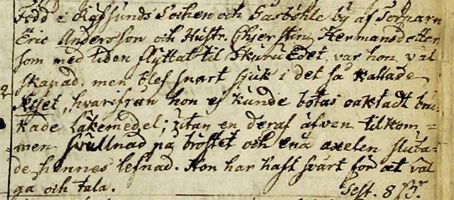 Född i Kassunds Sochen och Gasböhle by af Torparn
Eric Andersson och Hustr. Cherstin Hermansdotter
som med tiden flyttat til Skuru Edet, var hon väl
skapad, men blef snart sjuk i det så kallade
2 Riset, hvarifrån hon ej kunde botas oaktadt bru-
kade Läkemedel; utan en deraf äfven tilkom-
men swullnad på bröstet och ena axelen sluta-
de hennes lefnad. Hon har haft svårt för at väl
ga och tala. Sept. 8